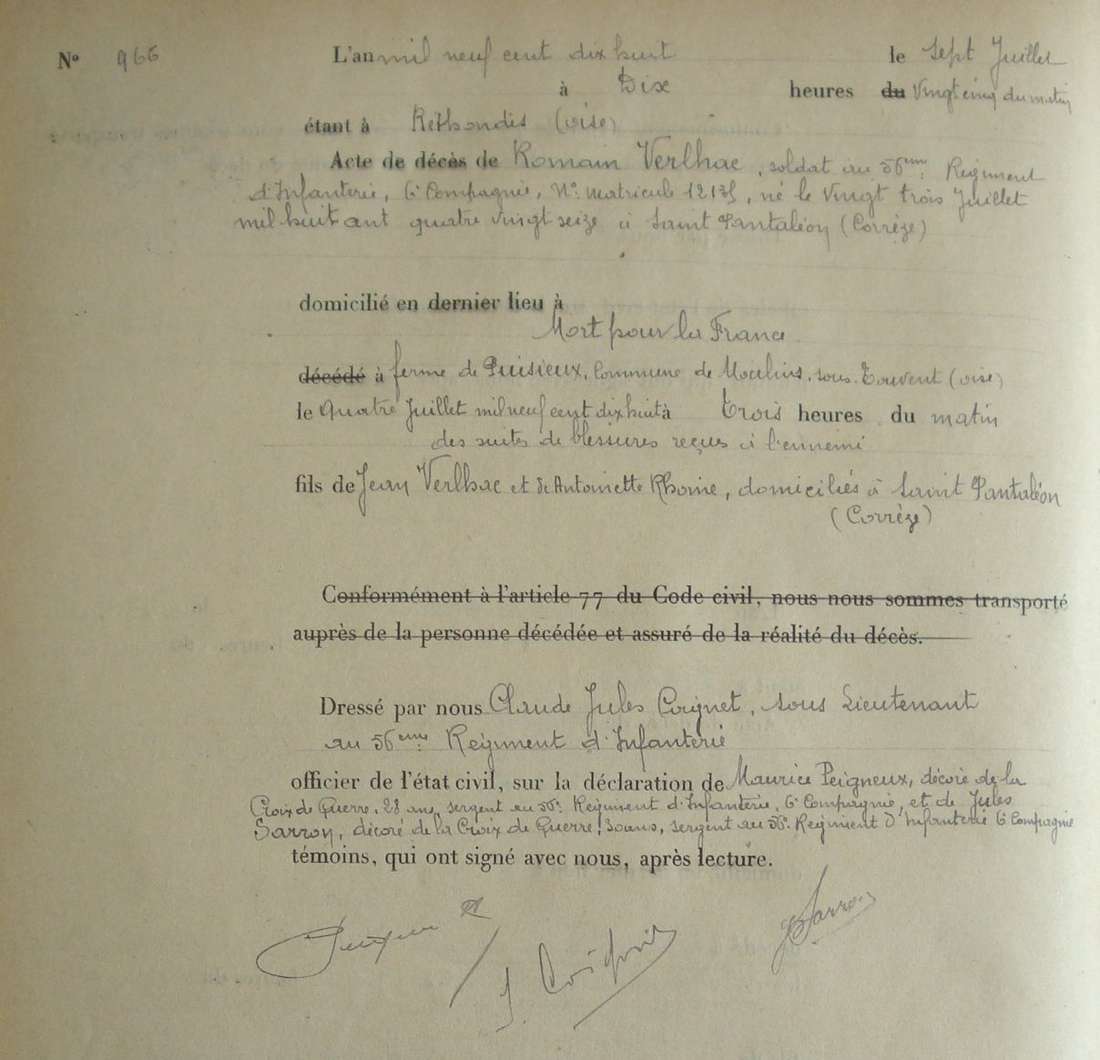 N° 966 L'an mil neuf cent dix huit le Sept Juillet
à Dix heures du Vingt cinq du matin
étant à Réthondes (oise)
Acte de décès de Romain Verlhac, soldat au 56ème Régiment
d'Infanterie, 6e Compagnie, N° Matricule 12135, né le Vingt trois Juillet
mil huit cent quatre vingt seize à Saint Pantaléon (Corrèze)
domicilié en dernier lieu à
Mort pour la France
décédé à ferme de Puisieux, Commune de Moulins sous Touvent (oise)
le Quatre Juillet mil neuf cent dix huit à trois heures du matin
des suites de blessures reçues à l'ennemi
fils de Jean Verlhac et de Antoinette, domiciliés à Saint Pantaléon
(Corrèze)
Conformément à l'article 77 du Code civil, nous nous sommes transporté
auprès de la personne décédée et assuré de la réalité du décès.
Dressé par nous Claude Jules Coignet, sous Lieutenant
au 56ème Régiment d'Infanterie
officier de l'état civil, sur la déclaration de Maurice Peigneux, décoré de la
Croix de Guerre, 28 ans, sergent au 56e Régiment d'Infanterie, 6e Compagnie, et de Jules
Sarron, décoré de la Croix de Guerre, 30 ans, sergent au 56e Régiment d'Infanterie 6e Compagnie
témoins, qui ont signé avec nous, après lecture.
J. Coignet
Sarron